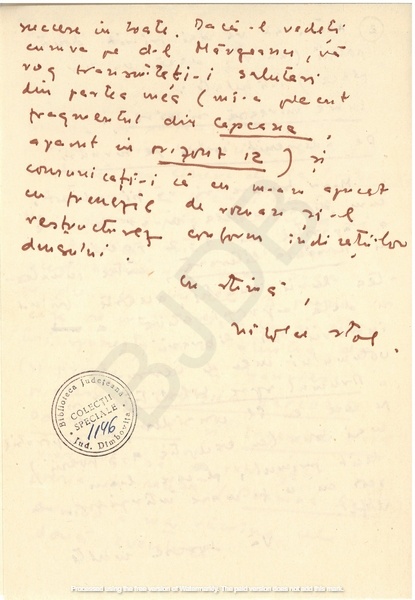 succese în toate. Dacă-l vedeți
cumva pe d-l Mărgeanu, vă
rog transmiteți-i salutări
din partea mea (mi-a plăcut
fragmentul din Capcana,
apărut în orizont 12) și
comunicați-i că eu m-am apucat
cu frenezie de roman și-l
restructurez conform indicațiilor
dînsului.
cu stimă,
BJDB
Biblioteca Județeană
COLECȚII
SPECIALE
1146
Jud. Dîmbovița